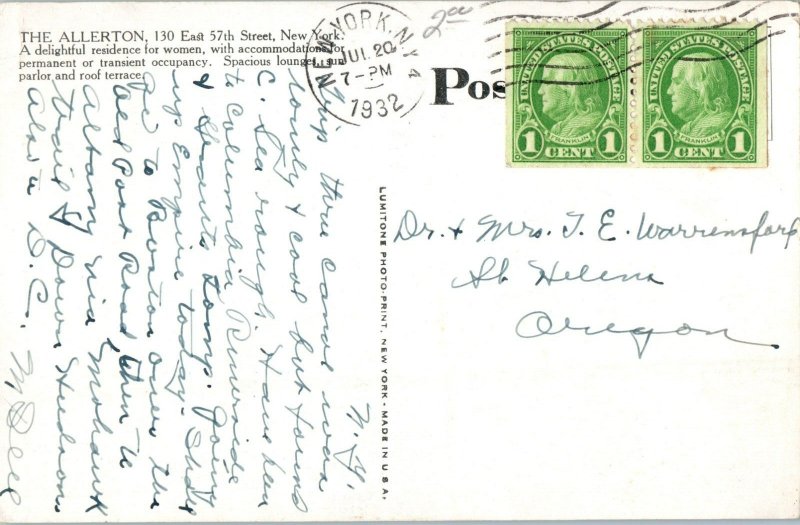 THE ALLERTON, 130 East 57th Street, New York.
A delightful residence for women, with accommodations for
permanent or transient occupancy. Spacious lounges, sun
parlor and roof terrace.
NEW YORK, N.Y. 4
JUL 20
7-PM
1932
2
Pos
UNITED STATES POSTAGE
FRANKLIN
1 CENT 1
UNITED STATES POSTAGE
FRANKLIN
1 CENT 1
N.Y.
Trip thru Canal was
lovely & cool but found
C. Sea rough. Have been
to Columbia Riverside
& Grants Tomb. Going
up Empire today.
go to Boston over the
Old Post Road, then to
Albany via Mohawk
trail & Down Hudson.
Also to D.C.
LUMITONE PHOTO-PRINT, NEW YORK - MADE IN U.S.A.
Dr. & Mrs. T. E. Warrensford
St Helens
Oregon